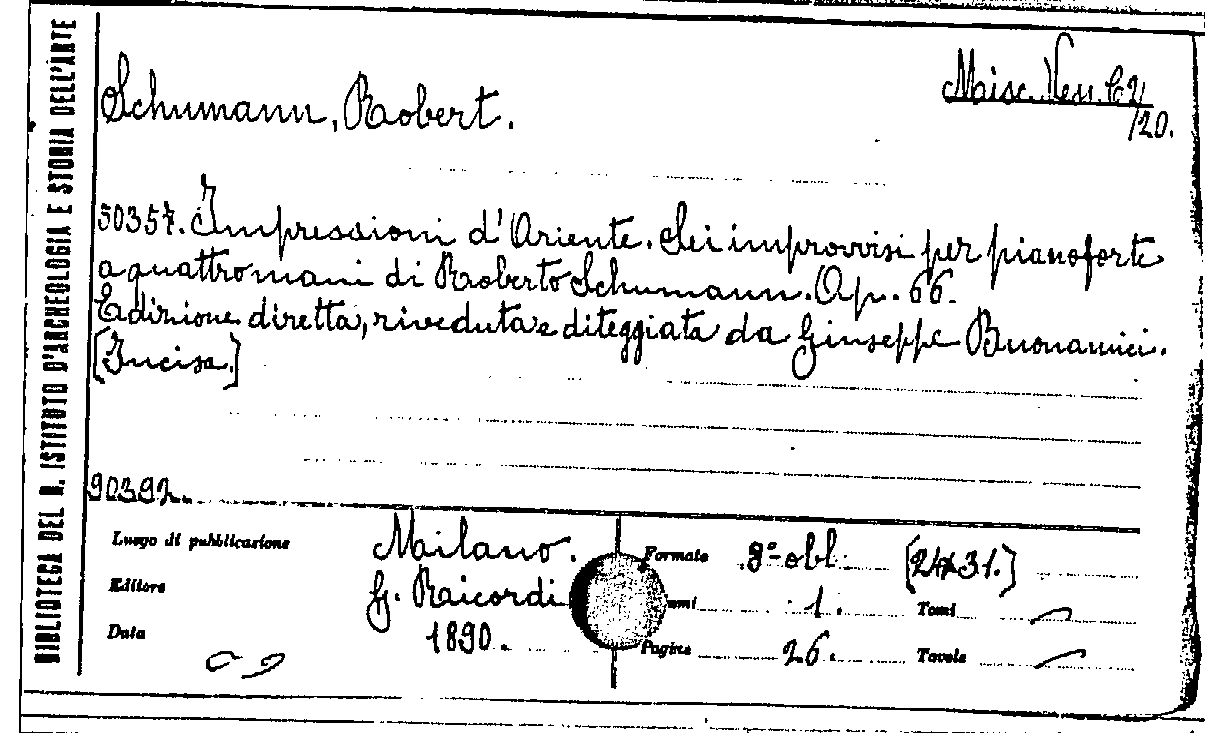 BIBLIOTECA DEL R. ISTITUTO D'ARCHEOLOGIA E STORIA DELL'ARTE
Schumann, Robert.
Misc. Ven. C2/
/20.
50357. Impressioni d'Oriente. Sei improvvisi per pianoforte
a quattro mani di Roberto Schumann. Op. 66.
Edizione diretta, riveduta e diteggiata da Giuseppe Buonamici.
[Incisa.]
90392.
Luogo di pubblicazione Milano. Formato 8º obl. [24x31.]
Editore G. Ricordi umi 1. Tomi —
Data 1890. Pagine 26. Tavole —